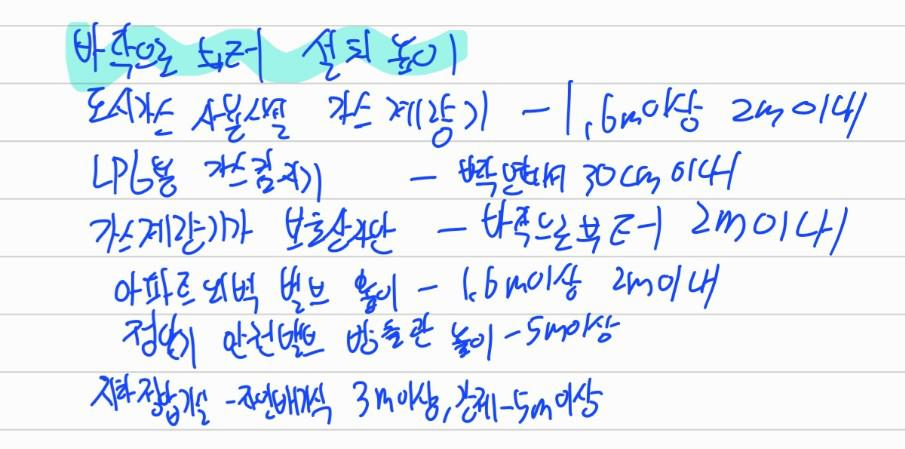 바닥으로 부터 설치 높이
도시가스 사용시설 가스 계량기 - 1.6m이상 2m 이내
LPG용 가스검지기 - 바닥면에서 30cm 이내
가스계량기가 보호상자안 - 바닥으로부터 2m이내
아파트 외벽 밸브 높이 - 1.6m이상 2m이내
정압기 안전밸브 방출관 높이 - 5m이상
지하정압기실 - 자연배기식 3m이상, 강제-5m이상